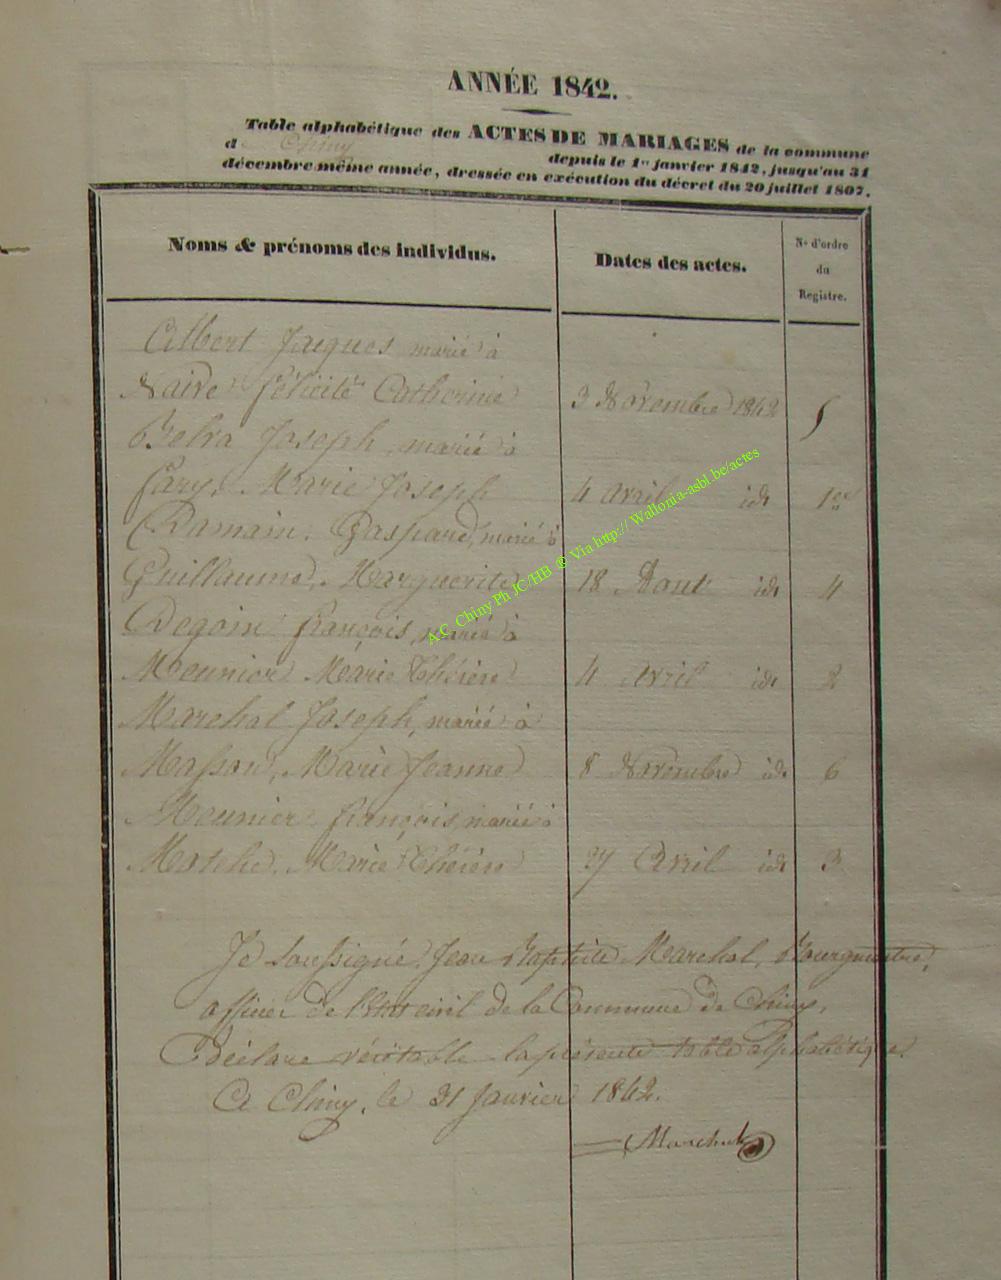 ANNÉE 1842.
Table alphabétique des ACTES DE MARIAGES de la commune
d Chiny depuis le 1er janvier 1842, jusqu'au 31
décembre même année, dressée en exécution du décret du 20 juillet 1807.
Noms & prénoms des individus. Dates des actes. No d'ordre du Registre.
Albert Jacques marié à
Naive Félicité Catherine 3 Novembre 1842 5
Belva Joseph, marié à
Fary, Marie Joseph 4 Avril id 1er
Damain. Gaspard, marié à
Guillaume, Marguerite 18 Aout id 4
Degoin françois, marié à
Meunier Marie Thérèse 4 Avril id 2
Marchal Joseph, marié à
Masson, Marie Jeanne 8 Novembre id 6
Meunier françois, marié à
Marie Thérèse 27 Avril id 3
Je soussigné Jean Baptiste Marchal, Bourgmestre,
officier de l'Etat civil de la Commune de Chiny,
Déclare véritable la présente table alphabétique.
A Chiny, le 31 Janvier 1842.
Marchal
A.C. Chiny Ph JC/HB ® Via http:// Wallonia-asbl.be/actes